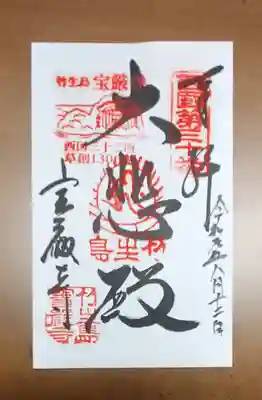 奉拝
西国第三十番
令和元年八月十二日
大悲殿
竹生島
竹生島 宝厳寺
西国三十三所
草創1300年
宝厳寺
竹生島
寶嚴寺